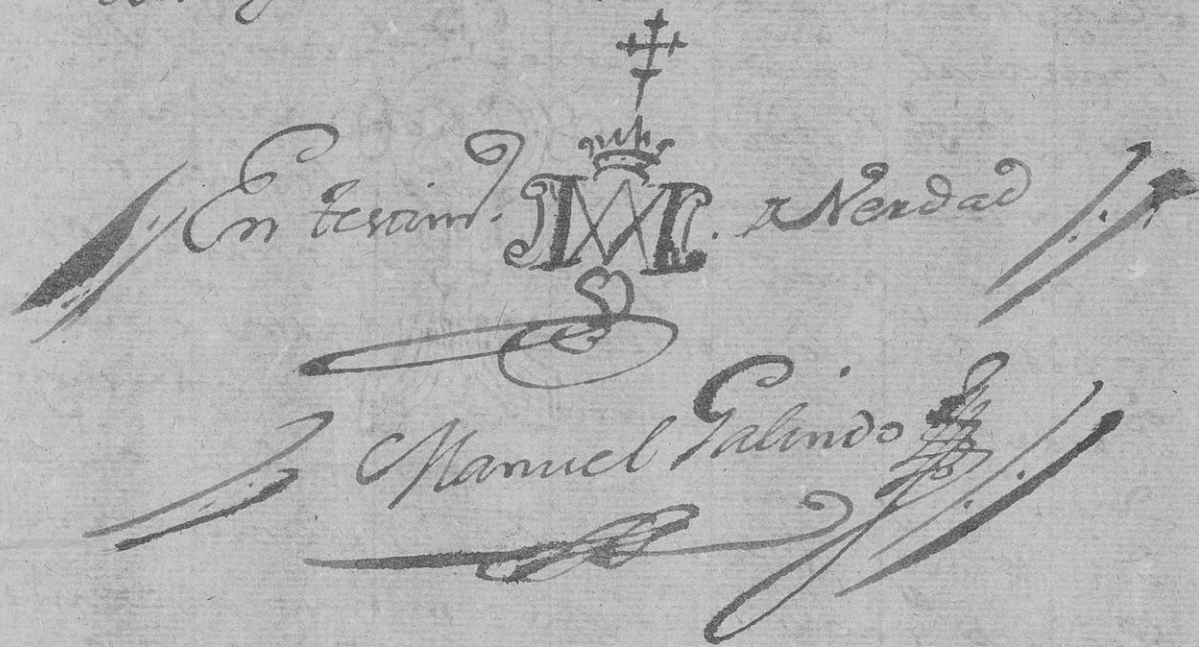 En testim.º M. de Verdad
Manuel Galindo